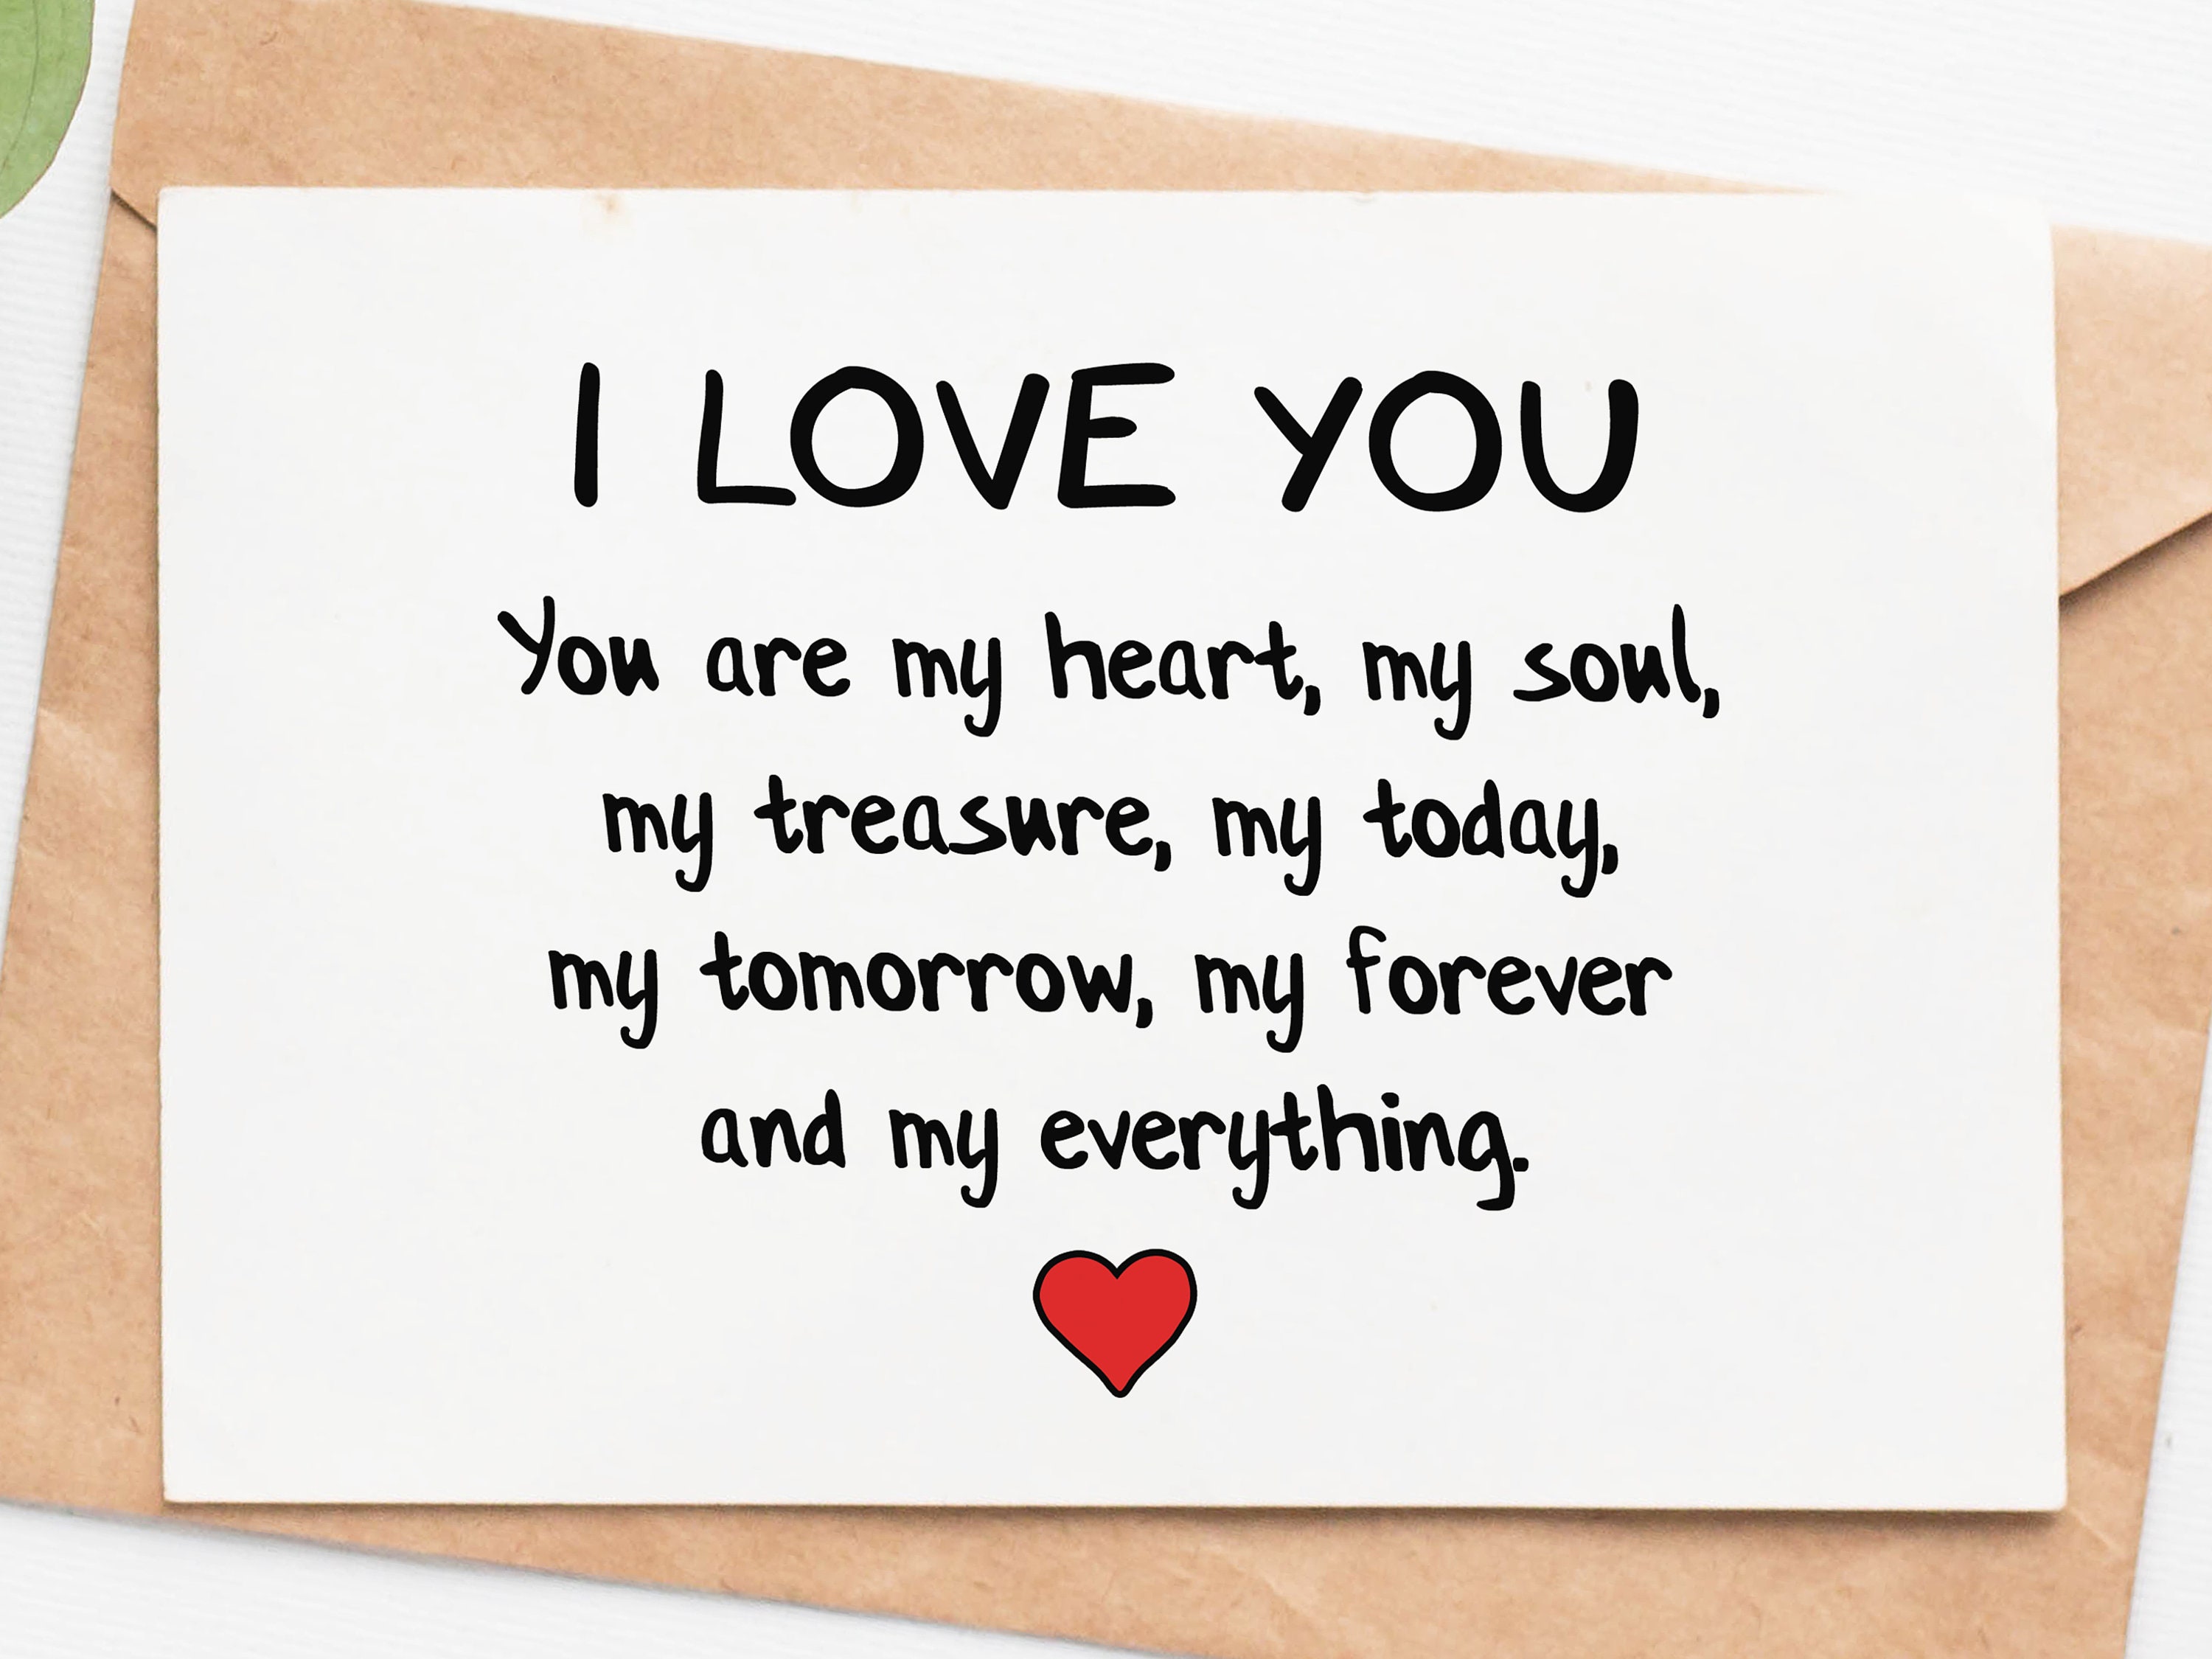 I LOVE YOU
You are my heart, my soul,
my treasure, my today,
my tomorrow, my forever
and my everything.